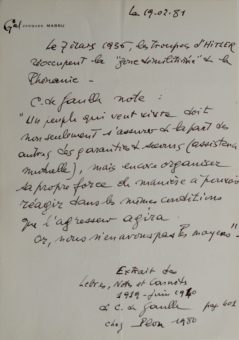 Le 19.02.81
Gal JACQUES MASSU
Le 7 Mars 1936, les troupes d'HITLER
réoccupent la "zone démilitarisée" de la
Rhénanie -
C. de Gaulle note :
"Un peuple qui veut vivre doit
non seulement s'assurer de la part des
autres des garanties de secours (assistance
mutuelle), mais encore organiser
sa propre force de manière à pouvoir
réagir dans les mêmes conditions
que l'agresseur agira.
Or, nous n'en avons pas les moyens"
Extrait des
Lettres, Notes et Carnets
1919 - Juin 1940
de C. de Gaulle pag 401
chez Plon 1980